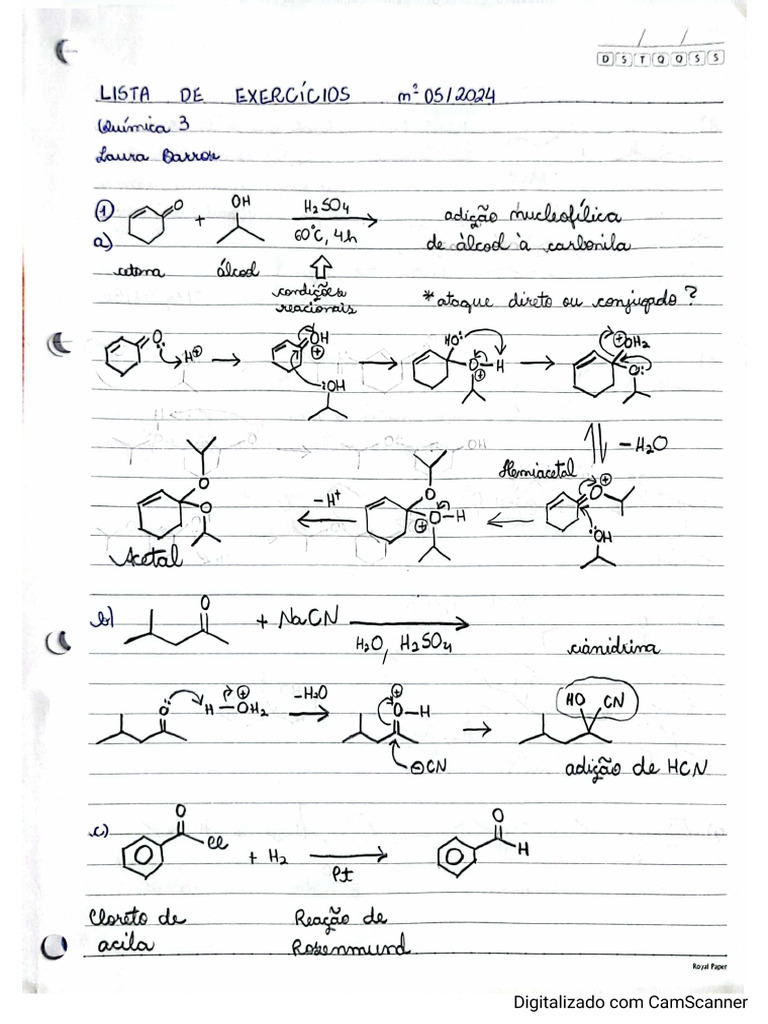 D S T Q Q S S
LISTA DE EXERCÍCIOS nº 05/2024
Química 3
Laura Barros
1
a) O + OH H2SO4 60°C, 4h adição nucleofílica
de álcool à carbonila
cetona álcool condições
reacionais *ataque direto ou conjugado?
O: H⊕ OH ⊕ :OH HO: O-H ⊕ ⊕OH2 O:
-H2O
Hemiacetal
O O -H+ O O-H ⊕ O⊕ :OH
Acetal
b) O + NaCN H2O, H2SO4 cianidrina
O: H-OH2 ⊕ -H2O ⊕ O-H ⊖CN HO CN
adição de HCN
c) O Cl + H2 Pt O H
Cloreto de Reação de
acila Rosenmund
Royal Paper
Digitalizado com CamScanner